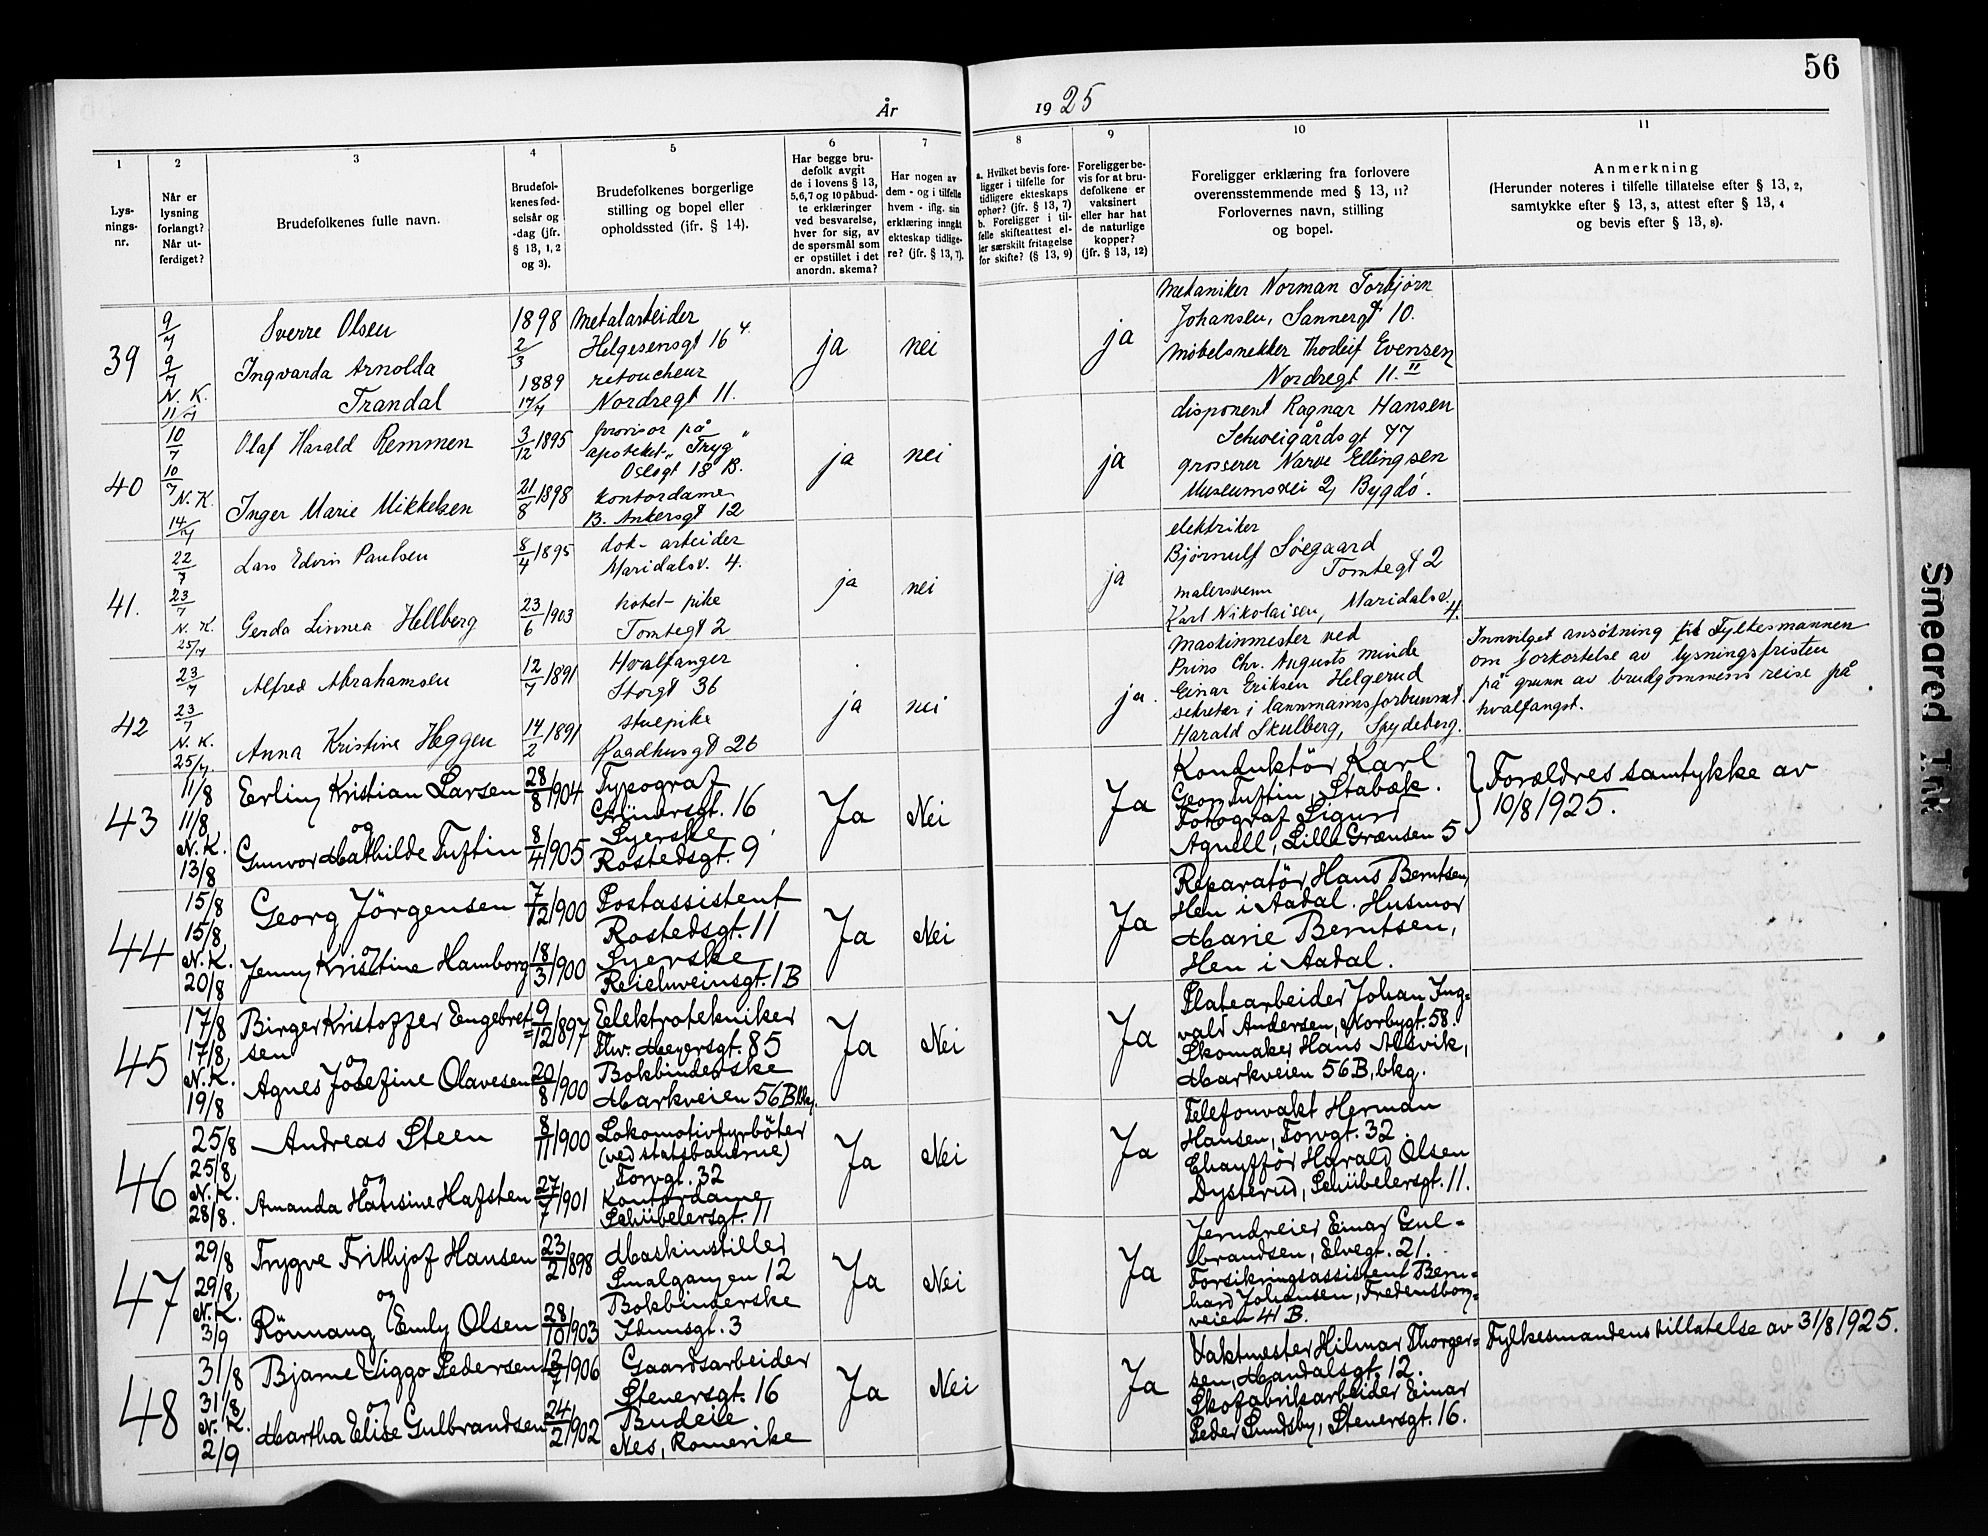 56
År 1925
1
2
3
4
5
6
7
8
9
10
11
Lys-
nings-
nr.
Når er
lysning
forlangt?
Når ut-
ferdiget?
Brudefolkenes fulle navn.
Brudefol-
kenes fød-
selsår og
-dag (jfr.
§ 13, 1, 2
og 3).
Brudefolkenes borgerlige
stilling og bopel eller
opholdssted (jfr. § 14).
Har begge bru-
defolk avgit
de i lovens § 13,
5,6,7 og 10 påbud-
te erklæringer
ved besvarelse,
hver for sig, av
de spørsmål som
er opstillet i det
anordn. skema?
Har nogen av
dem - og i tilfelle
hvem - iflg. sin
erklæring inngått
ekteskap tidlige-
re? (jfr. § 13, 7).
a. Hvilket bevis fore-
ligger i tilfelle for
tidligere ekteskaps
ophør? (jfr. § 13, 7)
b. Foreligger i til-
felle skifteattest el-
ler særskilt fritagelse
for skifte? (§ 13, 9)
Foreligger be-
vis for at bru-
defolkene er
vaksinert
eller har hat
de naturlige
kopper?
(jfr. § 13, 12)
Foreligger erklæring fra forlovere
overensstemmende med § 13, 11?
Forlovernes navn, stilling
og bopel.
Anmerkning
(Herunder noteres i tilfelle tillatelse efter § 13, 2,
samtykke efter § 13, 3, attest efter § 13, 4
og bevis efter § 13, 8).
39
9/7
9/7
N. K.
11/7
Sverre Olsen
Ingvarda Arnolda
Trandal
1898
2/3
1889
17/7
Metalarbeider
Helgesensgt 16 4.
retoucheur
Nordregt 11.
ja
nei
ja
Mekaniker Norman Torbjørn
Johansen, Sannergt 10.
Møbelsnekker Thorleif Evensen
Nordregt 11. II
40
10/7
10/7
N. K.
14/7
Olaf Harald Remmen
Inger Marie Mikkelsen
3/12 1895
21/8 1898
provisor på
apoteket „Tryg"
Oslogt 18 B.
kontordame
B. Ankersgt 12
ja
nei
ja
disponent Ragnar Hansen
Schweigårdsgt 77
grosserer Narve Ellingsen
Museumsvei 2, Bygdø.
41.
22/7
23/7
N. K.
25/7
Lars Edvin Paulsen
Gerda Linnea Hellberg
8/4 1895
23/6 1903
dok-arbeider
Maridalsv. 4.
hotel-pike
Tomtegt 2
ja
nei
ja
elektriker
Bjørnulf Søegaard
Tomtegt 2
malersvenn
Karl Nikolaisen, Maridalsv
4.
42
23/7
23/7
N. K.
25/7.
Alfred Abrahamsen
Anna Kristine Heggen
12/7 1891
14/2 1891
Hvalfanger
Storgt 36
stuepike
Raadhusgt 26
ja
nei
ja.
Maskinmester ved
Prins Chr. Augusts minde
Einar Eriksen Helgerud
sekretær i lannmannsforbunnet
Harald Skulberg, Spydeberg.
Innvilget ansökning fra Fylkesmannen
om forkortelse av lysningsfristen
på grunn av brudgommens reise på
hvalfangst.
43
11/8
11/8
N. K.
13/8
Erling Kristian Larsen
og
Gunvor Mathilde Tuftin
28/8 1904
8/4 1905
Typograf
Grünersgt. 16
Syerske
Rostedsgt. 9
Ja
Nei
Ja
Konduktör Karl
Georg Tuftin, Stabæk.
Fotograf Sigurd
Agnell, Lille Grænsen 5
Forældres samtykke av
10/8 1925.
44
15/8
15/8
N. K.
20/8
Georg Jörgensen
og
Jenny Kristine Hamborg
7/12 1900
18/3 1900
Postassistent
Rostedsgt. 11
Syerske
Reichweinsgt. 1 B
Ja
Nei
Ja
Reparatör Hans Berntsen,
Hen i Aadal. Husmor
Marie Berntsen,
Hen i Aadal.
45
17/8
17/8
N. K.
19/8
Birger Kristoffer Engebret=
sen
og
Agnes Josefine Olavesen
9/12 1897
20/8 1900
Elektrotekniker
Thv. Meyersgt. 85
Bokbinderske
Markveien 56 B, bkg.
Ja
Nei
Ja
Platearbeider Johan Ing=
vald Andersen, Norbygt. 58.
Skomaker Hans Alsvik,
Markveien 56 B, bkg.
46
25/8
25/8.
N. K.
28/8.
Andreas Steen
og
Amanda Hansine Hafsten
8/11 1900
27/7 1901
Lokomotivfyrböter
(ved statsbanerne)
Torvgt. 32
Kontordame
Schübelersgt. 11
Ja
Nei
Ja
Telefonvakt Herman
Hansen, Torvgt. 32.
Chauffør Harald Olsen
Dysterud, Schübelersgt. 11.
47
29/8
29/8,
N. K.
3/9
Trygve Frithjof Hansen
og
Rönnaug Emly Olsen
23/2 1898
28/10 1903
Maskinstiller
Smalgangen 12
Bokbinderske
Idunsgt. 3
Ja
Nei
Ja
Jerndreier Einar Gul=
brandsen, Elvegt. 21.
Forsikringsassistent Bern=
hard Johansen, Fredensborg=
veien 41 B.
48
31/8
31/8,
N. K.
2/9
Bjarne Viggo Pedersen
og
Martha Elise Gulbrandsen
1906
24/2 1902
Gaardsarbeider
Stenersgt. 16
Budeie
Nes, Romerike
Ja
Nei
Ja
Vaktmester Hilmar Thorger=
sen, Mandalsgt. 12.
Skofabrikarbeider Einar
Peder Sundsby, Stenersgt. 16.
Fylkesmandens tillatelse av 31/8 1925.
Smeared Ink